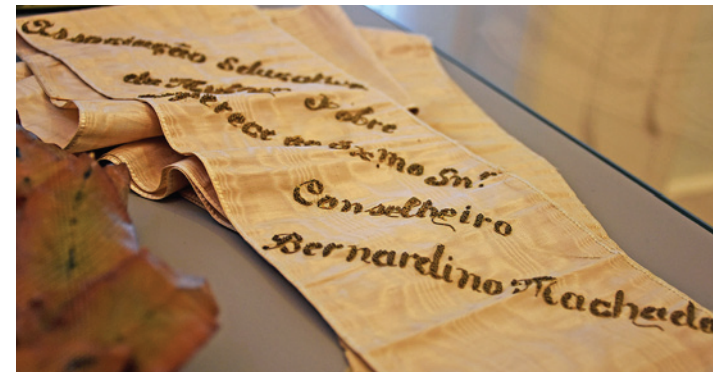 Associação Educativa
da Mulher Pobre
offerece ao Exmo Snr.
Conselheiro
Bernardino Machado